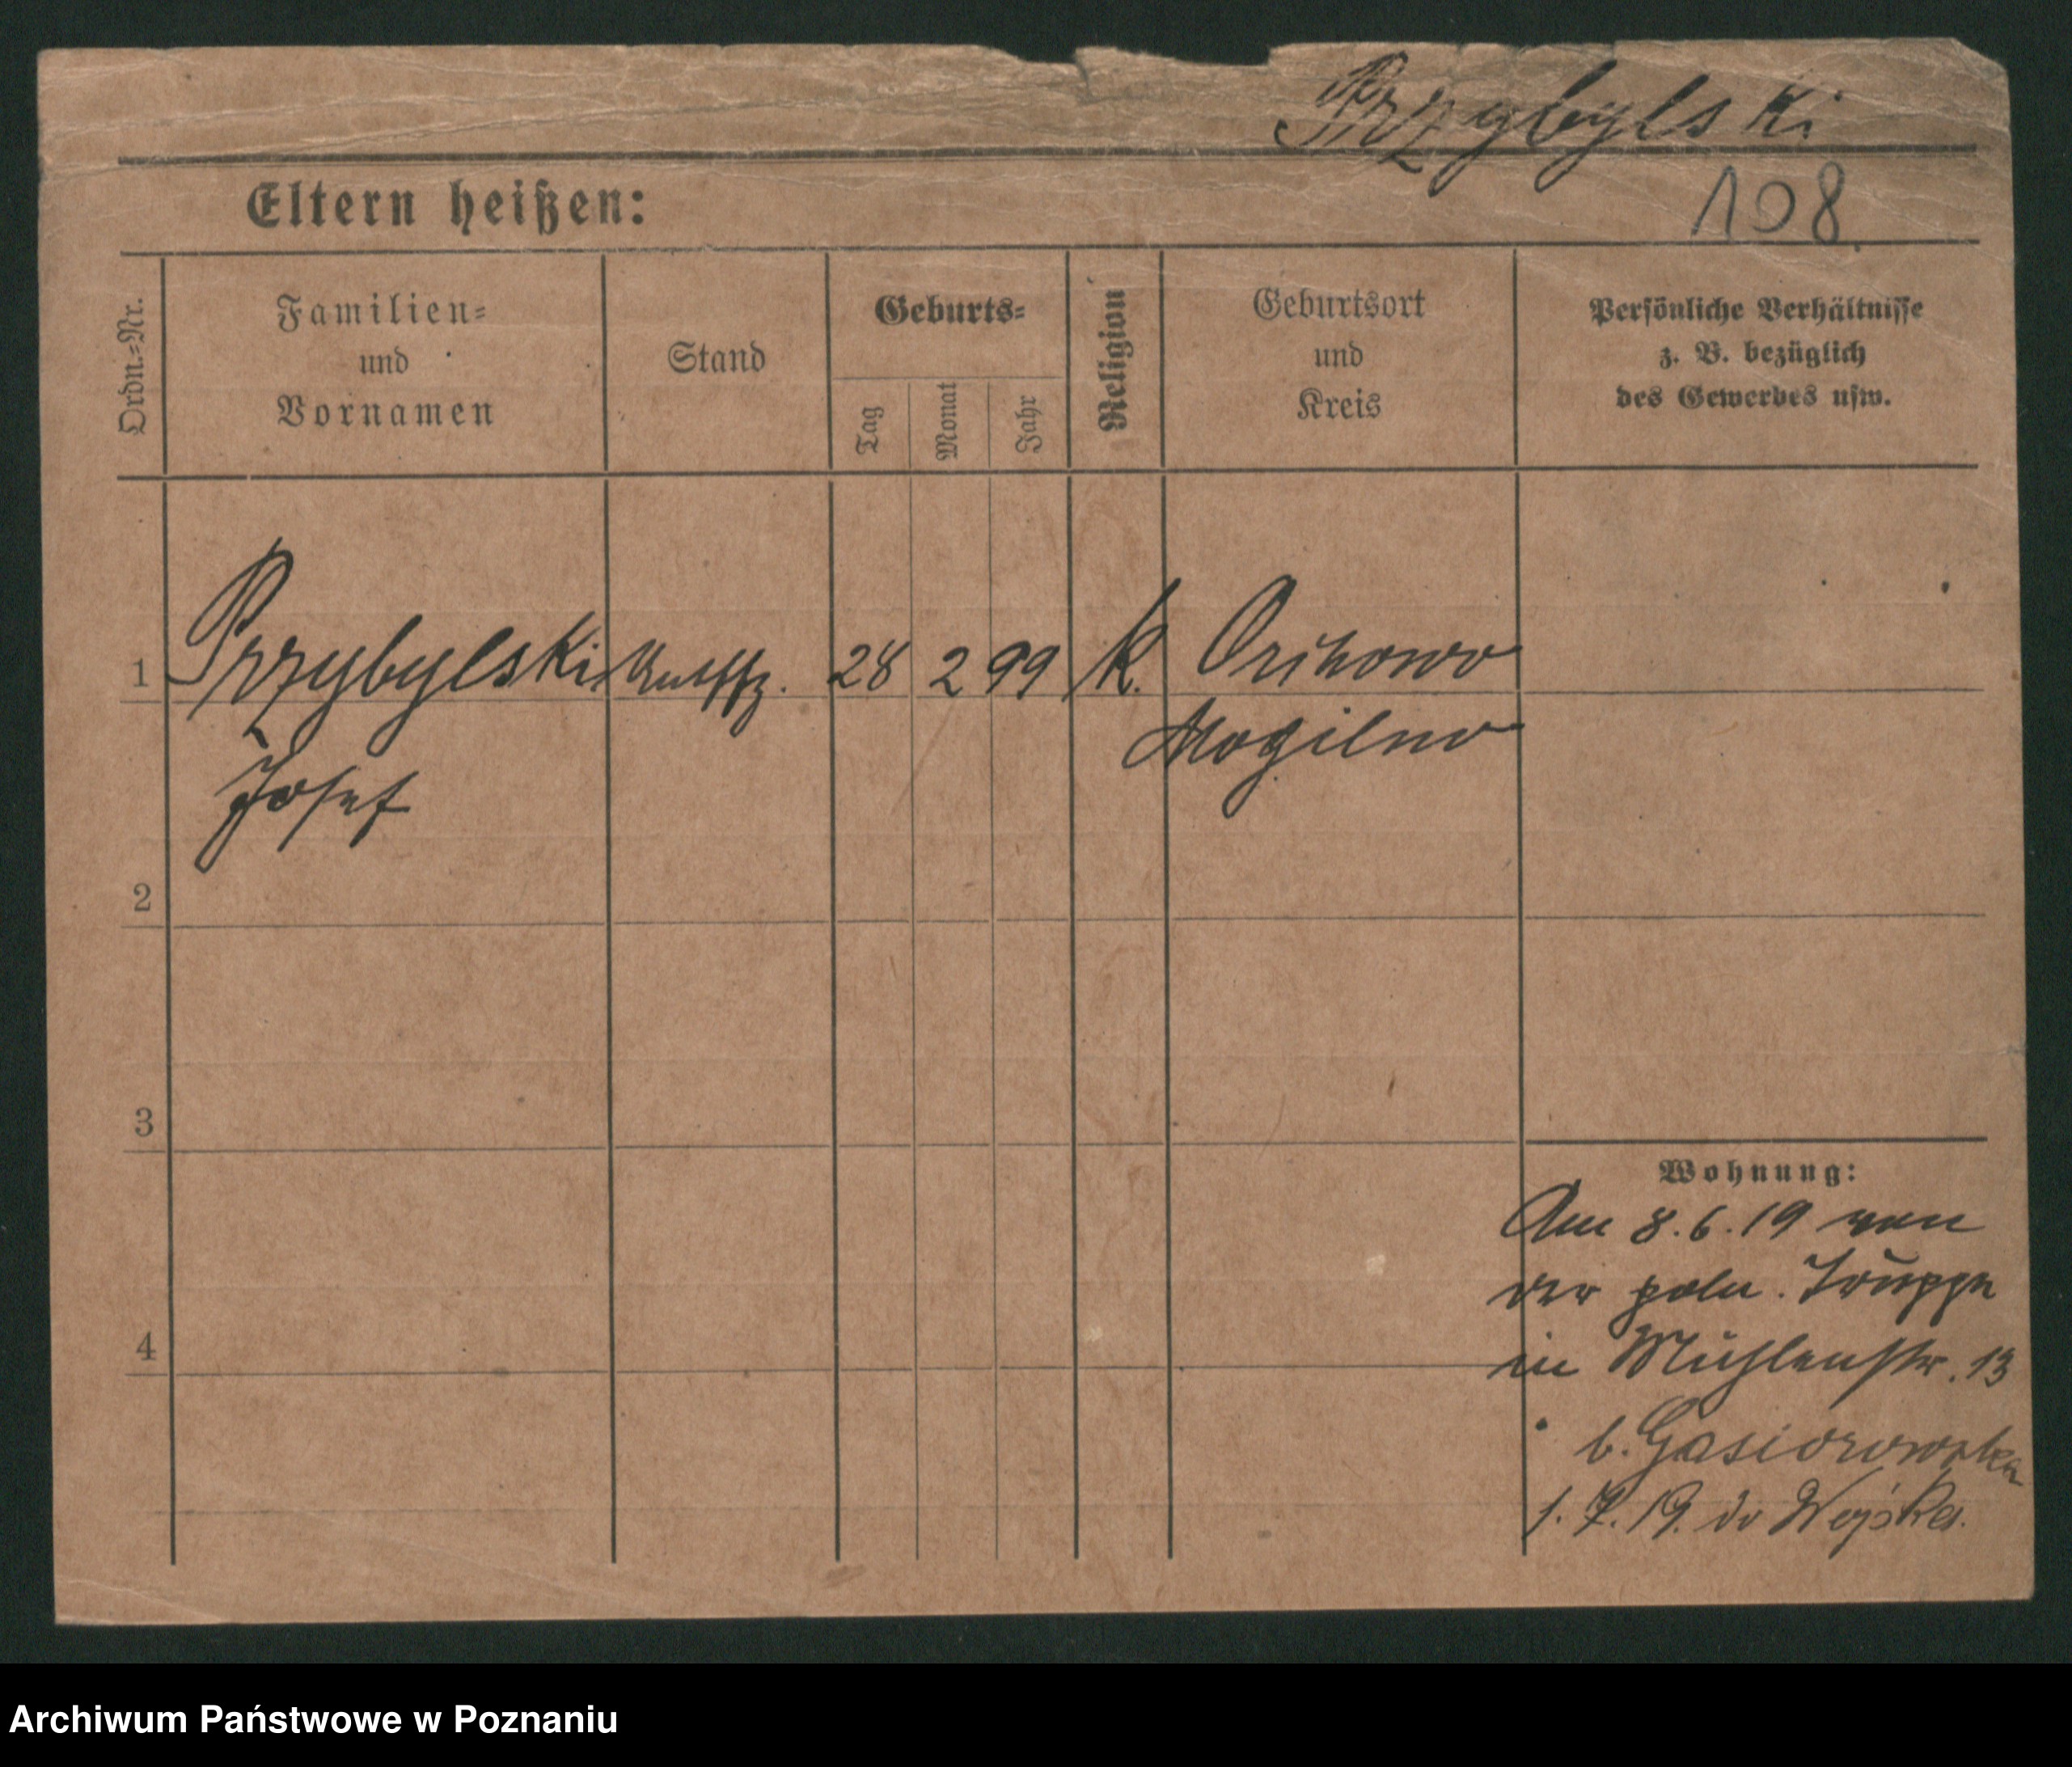 Przybylski
Eltern heißen:
108
Ordn.-Nr.
Familien-
und
Vornamen
Stand
Geburts-
Tag
Monat
Jahr
Religion
Geburtsort
und
Kreis
Persönliche Verhältnisse
z. B. bezüglich
des Gewerbes usw.
1 Przybylski 28 2 99 k.
Mogilno
Josef
2
3
4
Wohnung:
Am 8.6.19 von
der poln. Truppe
in Mühlenstr. 13
b. Gasiorowska
1.7.19. do Wojska.
Archiwum Państwowe w Poznaniu